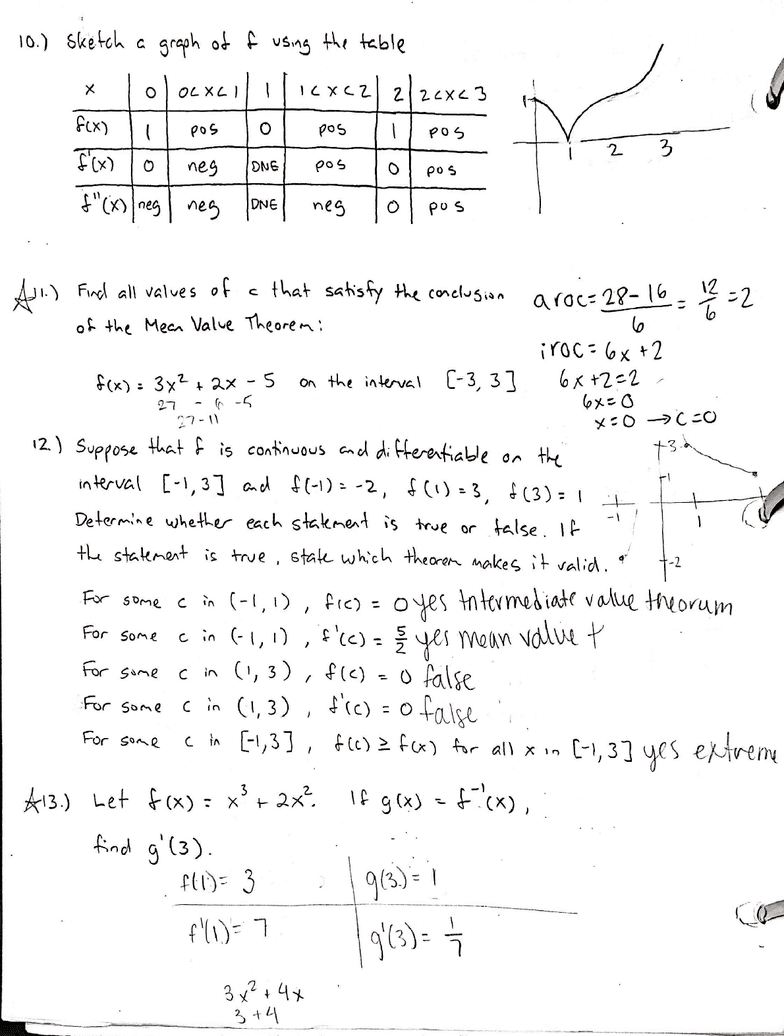 10.) Sketch a graph of f using the table
x | 0 | 0<x<1 | 1 | 1<x<2 | 2 | 2<x<3
f(x) | 1 | pos | 0 | pos | 1 | pos
f'(x) | 0 | neg | DNE | pos | 0 | pos
f"(x) | neg | neg | DNE | neg | 0 | pos
1
1 2 3
☆11.) Find all values of c that satisfy the conclusion
of the Mean Value Theorem:
f(x) = 3x² + 2x - 5 on the interval [-3, 3]
27 - 6 -5
27-11
aroc = 28-16/6 = 12/6 = 2
iroc = 6x+2
6x+2=2
6x=0
x=0 → c=0
12.) Suppose that f is continuous and differentiable on the
interval [-1,3] and f(-1) = -2, f(1) = 3, f(3) = 1
Determine whether each statement is true or false. If
the statement is true, state which theorem makes it valid.
3
1
-1 1
-2
For some c in (-1,1), f(c) = 0 yes Intermediate value theorum
For some c in (-1,1), f'(c) = 5/2 yes mean value t
For some c in (1,3), f(c) = 0 false
For some c in (1,3), f'(c) = 0 false
For some c in [-1,3], f(c) ≥ f(x) for all x in [-1,3] yes extreme
☆13.) Let f(x) = x³ + 2x². If g(x) = f⁻¹(x),
find g'(3).
f(1) = 3 | g(3) = 1
f'(1) = 7 | g'(3) = 1/7
3x² + 4x
3 + 4